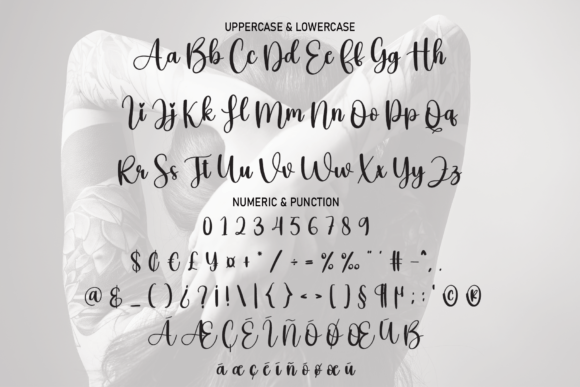 UPPERCASE & LOWERCASE
Aa Bb Cc Dd Ee Ff Gg Hh
Ii Jj Kk Ll Mm Nn Oo Pp Qq
Rr Ss Tt Uu Vv Ww Xx Yy Zz
NUMERIC & PUNCTION
0 1 2 3 4 5 6 7 8 9
$ ₵ € £ ¥ ¤ + * / ÷ = % ‰ " ' # - ^ , .
@ & _ ( ) ¿ ? ¡ ! \ | { } < > [ ] § ¶ µ ; : ' © ®
Á Æ Ç É Í Ñ Ó Ø Œ Ú ß
á æ ç é í ñ ó ø œ ú